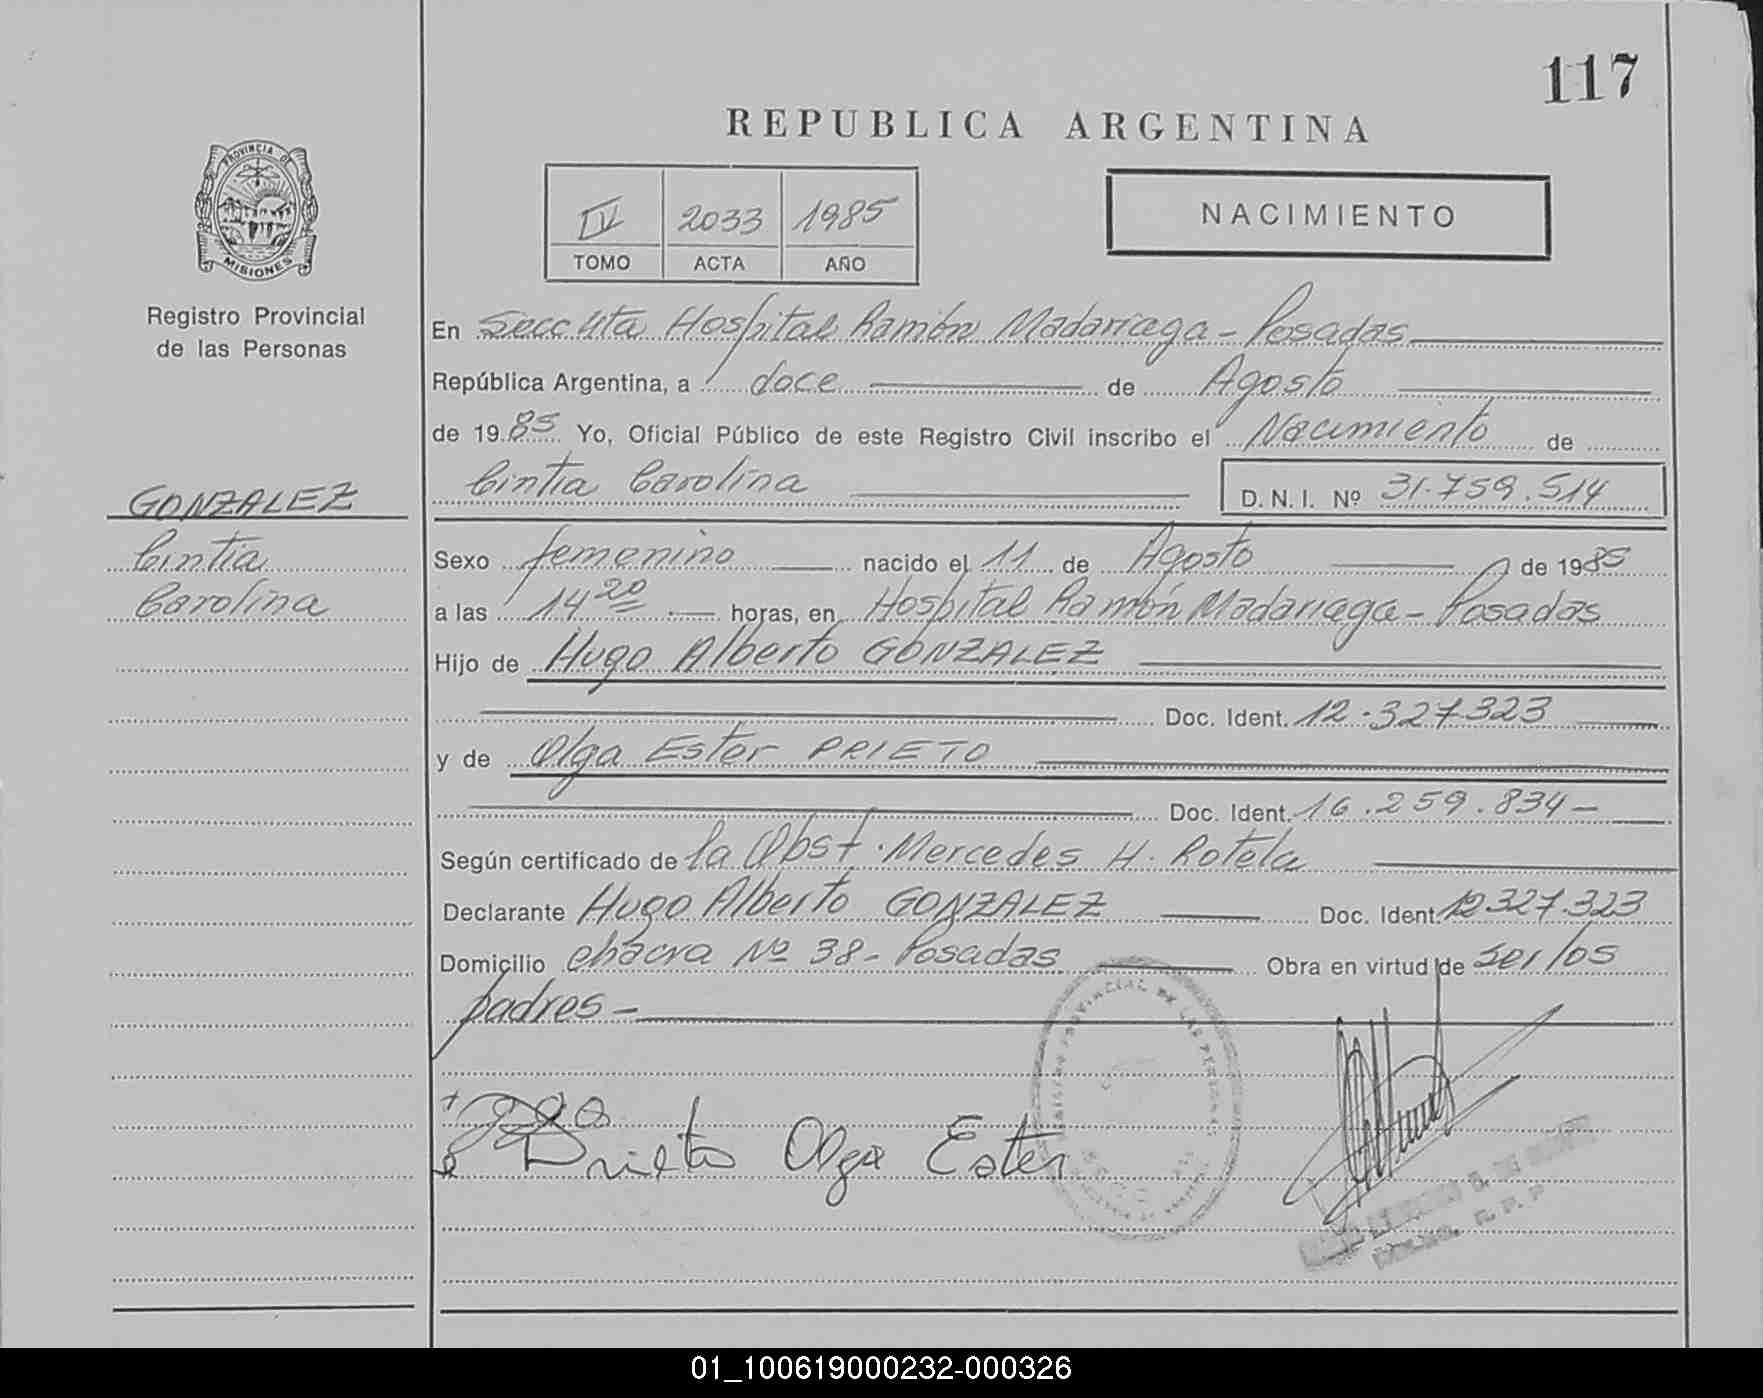 117
REPUBLICA ARGENTINA
PROVINCIA DE
MISIONES
IV 2033 1985
TOMO ACTA AÑO
NACIMIENTO
Registro Provincial
de las Personas
En Secc 4ta Hospital Ramón Madariaga - Posadas
República Argentina, a doce de Agosto
de 1985 Yo, Oficial Público de este Registro Civil inscribo el Nacimiento de
Cintia Carolina D. N. I. Nº 31.759.514
GONZALEZ
Cintia
Carolina
Sexo femenino nacido el 11 de Agosto de 1985
a las 14 20 horas, en Hospital Ramón Madariaga - Posadas
Hijo de Hugo Alberto GONZALEZ
Doc. Ident. 12.327.323
y de Olga Ester PRIETO
Doc. Ident. 16.259.834 -
Según certificado de la Obst. Mercedes H. Rotela
Declarante Hugo Alberto GONZALEZ Doc. Ident. 12.327.323
Domicilio chacra Nº 38 - Posadas Obra en virtud de ser los
padres -
Prieto Olga Ester
01_100619000232-000326